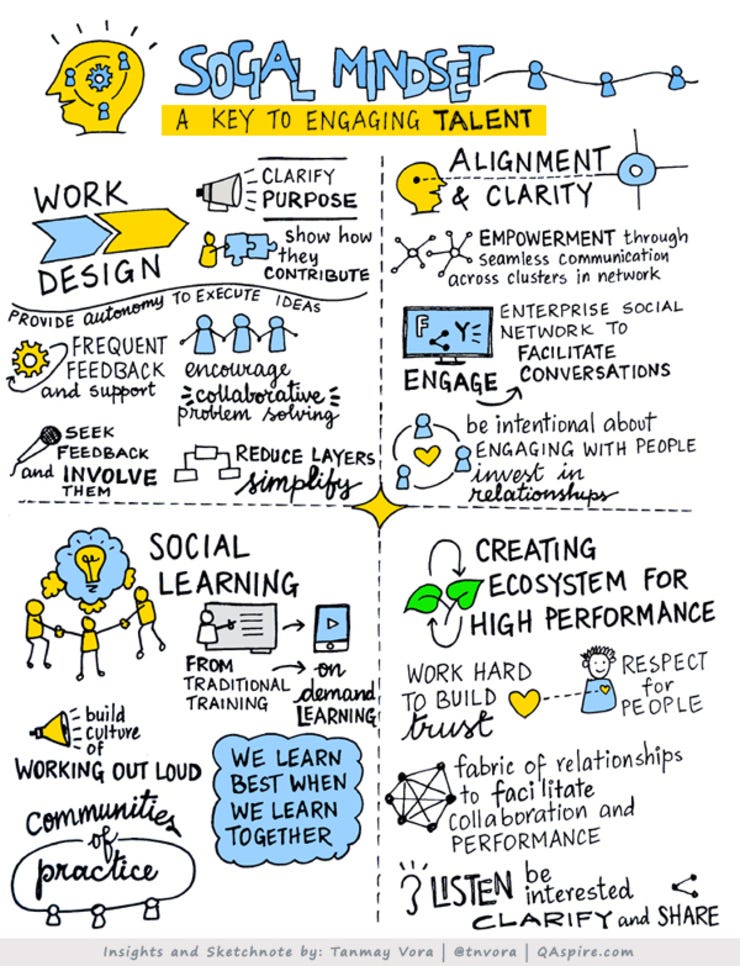 SOCIAL MINDSET
A KEY TO ENGAGING TALENT
WORK
DESIGN
CLARIFY
PURPOSE
show how
they
CONTRIBUTE
PROVIDE autonomy TO EXECUTE IDEAS
FREQUENT
FEEDBACK
and support
encourage
collaborative
problem solving
SEEK
FEEDBACK
and INVOLVE
THEM
REDUCE LAYERS
simplify
ALIGNMENT
& CLARITY
EMPOWERMENT through
seamless communication
across clusters in network
F
Y
ENGAGE
ENTERPRISE SOCIAL
NETWORK TO
FACILITATE
CONVERSATIONS
be intentional about
ENGAGING WITH PEOPLE
invest in
relationships
SOCIAL
LEARNING
FROM
TRADITIONAL
TRAINING
on
demand
LEARNING
build
culture
of
WORKING OUT LOUD
communities
of
practice
WE LEARN
BEST WHEN
WE LEARN
TOGETHER
CREATING
ECOSYSTEM FOR
HIGH PERFORMANCE
WORK HARD
TO BUILD
trust
RESPECT
for
PEOPLE
fabric of relationships
to facilitate
collaboration and
PERFORMANCE
LISTEN be
interested
CLARIFY and SHARE
Insights and Sketchnote by: Tanmay Vora | @tnvora | QAspire.com